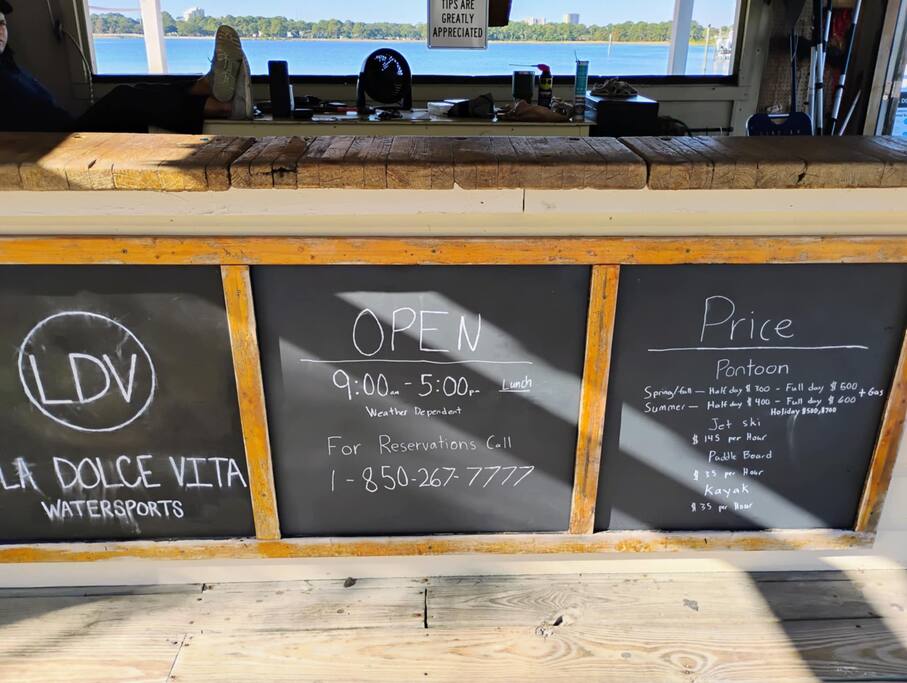 TIPS ARE
GREATLY
APPRECIATED
LDV
LA DOLCE VITA
WATERSPORTS
OPEN
9:00am - 5:00pm Lunch
Weather Dependent
For Reservations Call
1-850-267-7777
Price
Pontoon
Spring/fall — Half day $300 - Full day $500
Summer — Half day $400 - Full day $600 + Gas
Holiday $500,$700
Jet ski
$145 per Hour
Paddle Board
$35 per Hour
Kayak
$35 per Hour